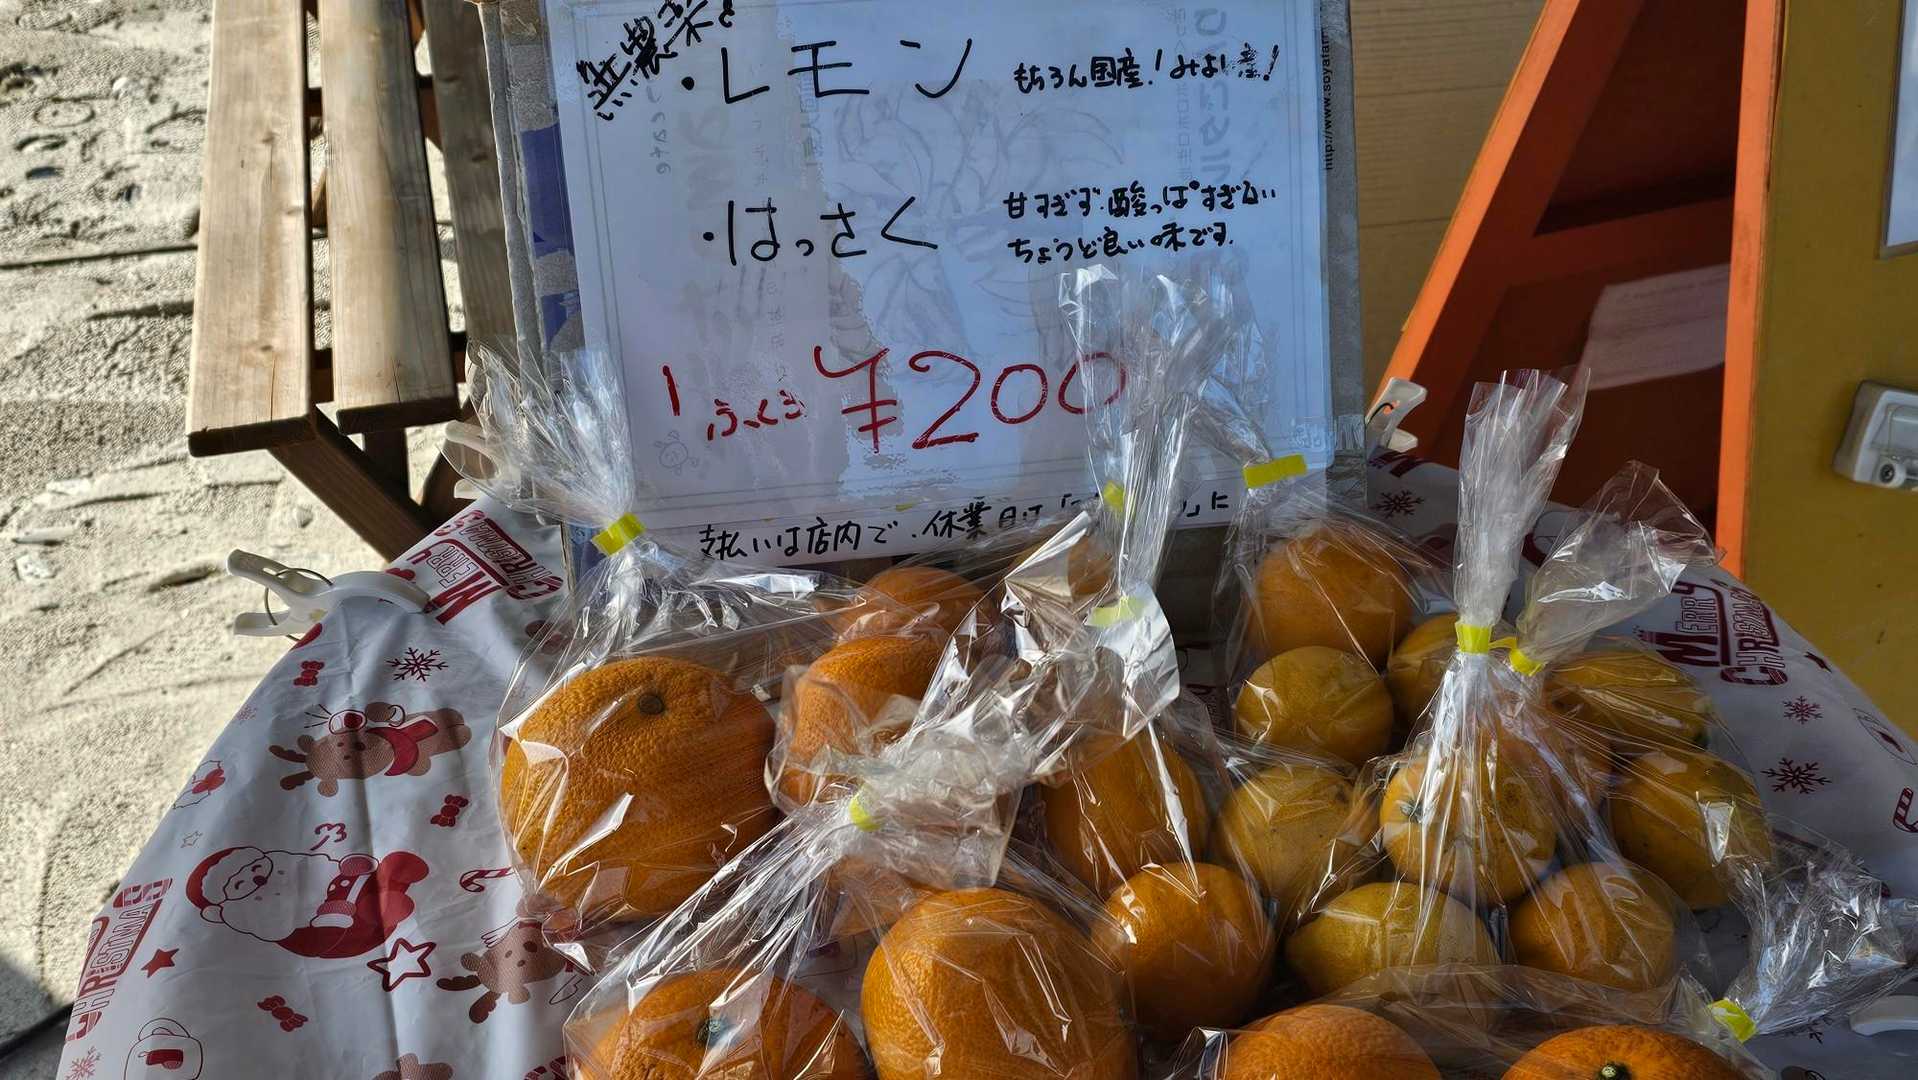 無農薬
・レモン もちろん国産！みよし産！
・はっさく 甘すぎず、酸っぱすぎない
ちょうど良い味です。
1ふくろ ¥200
支払いは店内で、休業日は「
」に
http://www.soyafar
MERRY
CHRISTMAS
MERRY
CHRISTMAS
CHRISTMAS